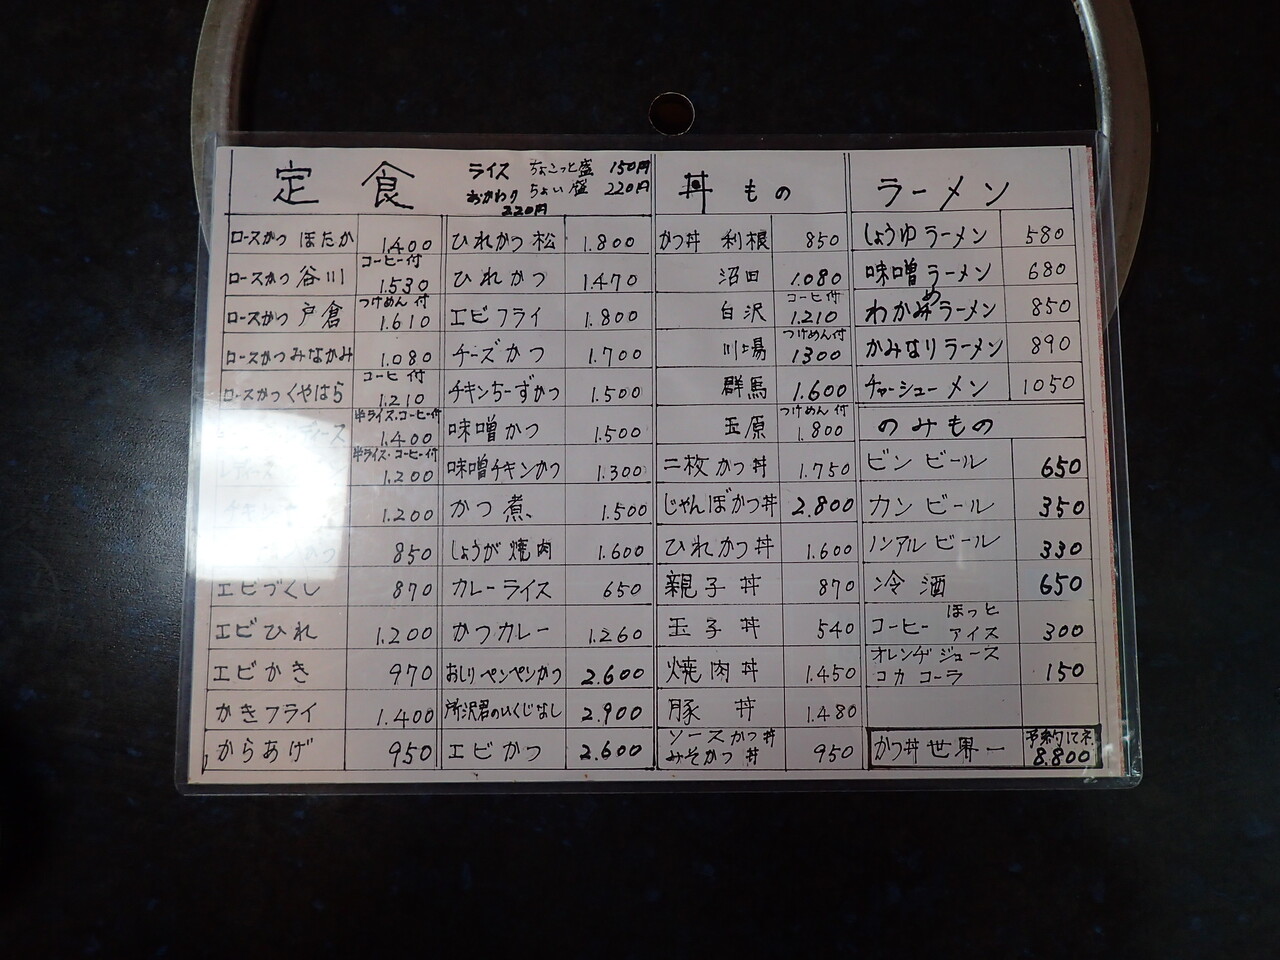 定食
ライス ちょこっと盛 150円
おかわり ちょい盛 220円
220円
ロースかつ ほたか 1.400
ロースかつ 谷川 コーヒー付 1.530
ロースかつ 戸倉 つけめん付 1.610
ロースかつ みなかみ 1.080
ロースかつ くやはら コーヒー付 1.210
ース 半ライス・コーヒー付 1.400
レディース 半ライス・コーヒー付 1.200
1.200
かつ 850
エビづくし 870
エビひれ 1.200
エビかき 970
かきフライ 1.400
からあげ 950
ひれかつ 松 1.800
ひれかつ 1.470
エビフライ 1.800
チーズかつ 1.700
チキンちーずかつ 1.500
味噌かつ 1.500
味噌チキンかつ 1.300
かつ煮 1.500
しょうが焼肉 1.600
カレーライス 650
かつカレー 1.260
おしりペンペンかつ 2.600
所沢君のいくじなし 2.900
エビかつ 2.600
丼もの
かつ丼 利根 850
沼田 1.080
白沢 コーヒー付 1.210
川場 つけめん付 1300
群馬 1.600
玉原 つけめん付 1.800
二枚かつ丼 1.750
じゃんぼかつ丼 2.800
ひれかつ丼 1.600
親子丼 870
玉子丼 540
焼肉丼 1.450
豚丼 1.480
ソースかつ丼
みそかつ丼 950
ラーメン
しょうゆラーメン 580
味噌ラーメン 680
わかめラーメン 850
かみなりラーメン 890
チャーシューメン 1050
のみもの
ビンビール 650
カンビール 350
ノンアルビール 330
冷酒 650
コーヒー ほっと アイス 300
オレンヂジュース
コカコーラ 150
かつ丼 世界一 予約してネ 8.800